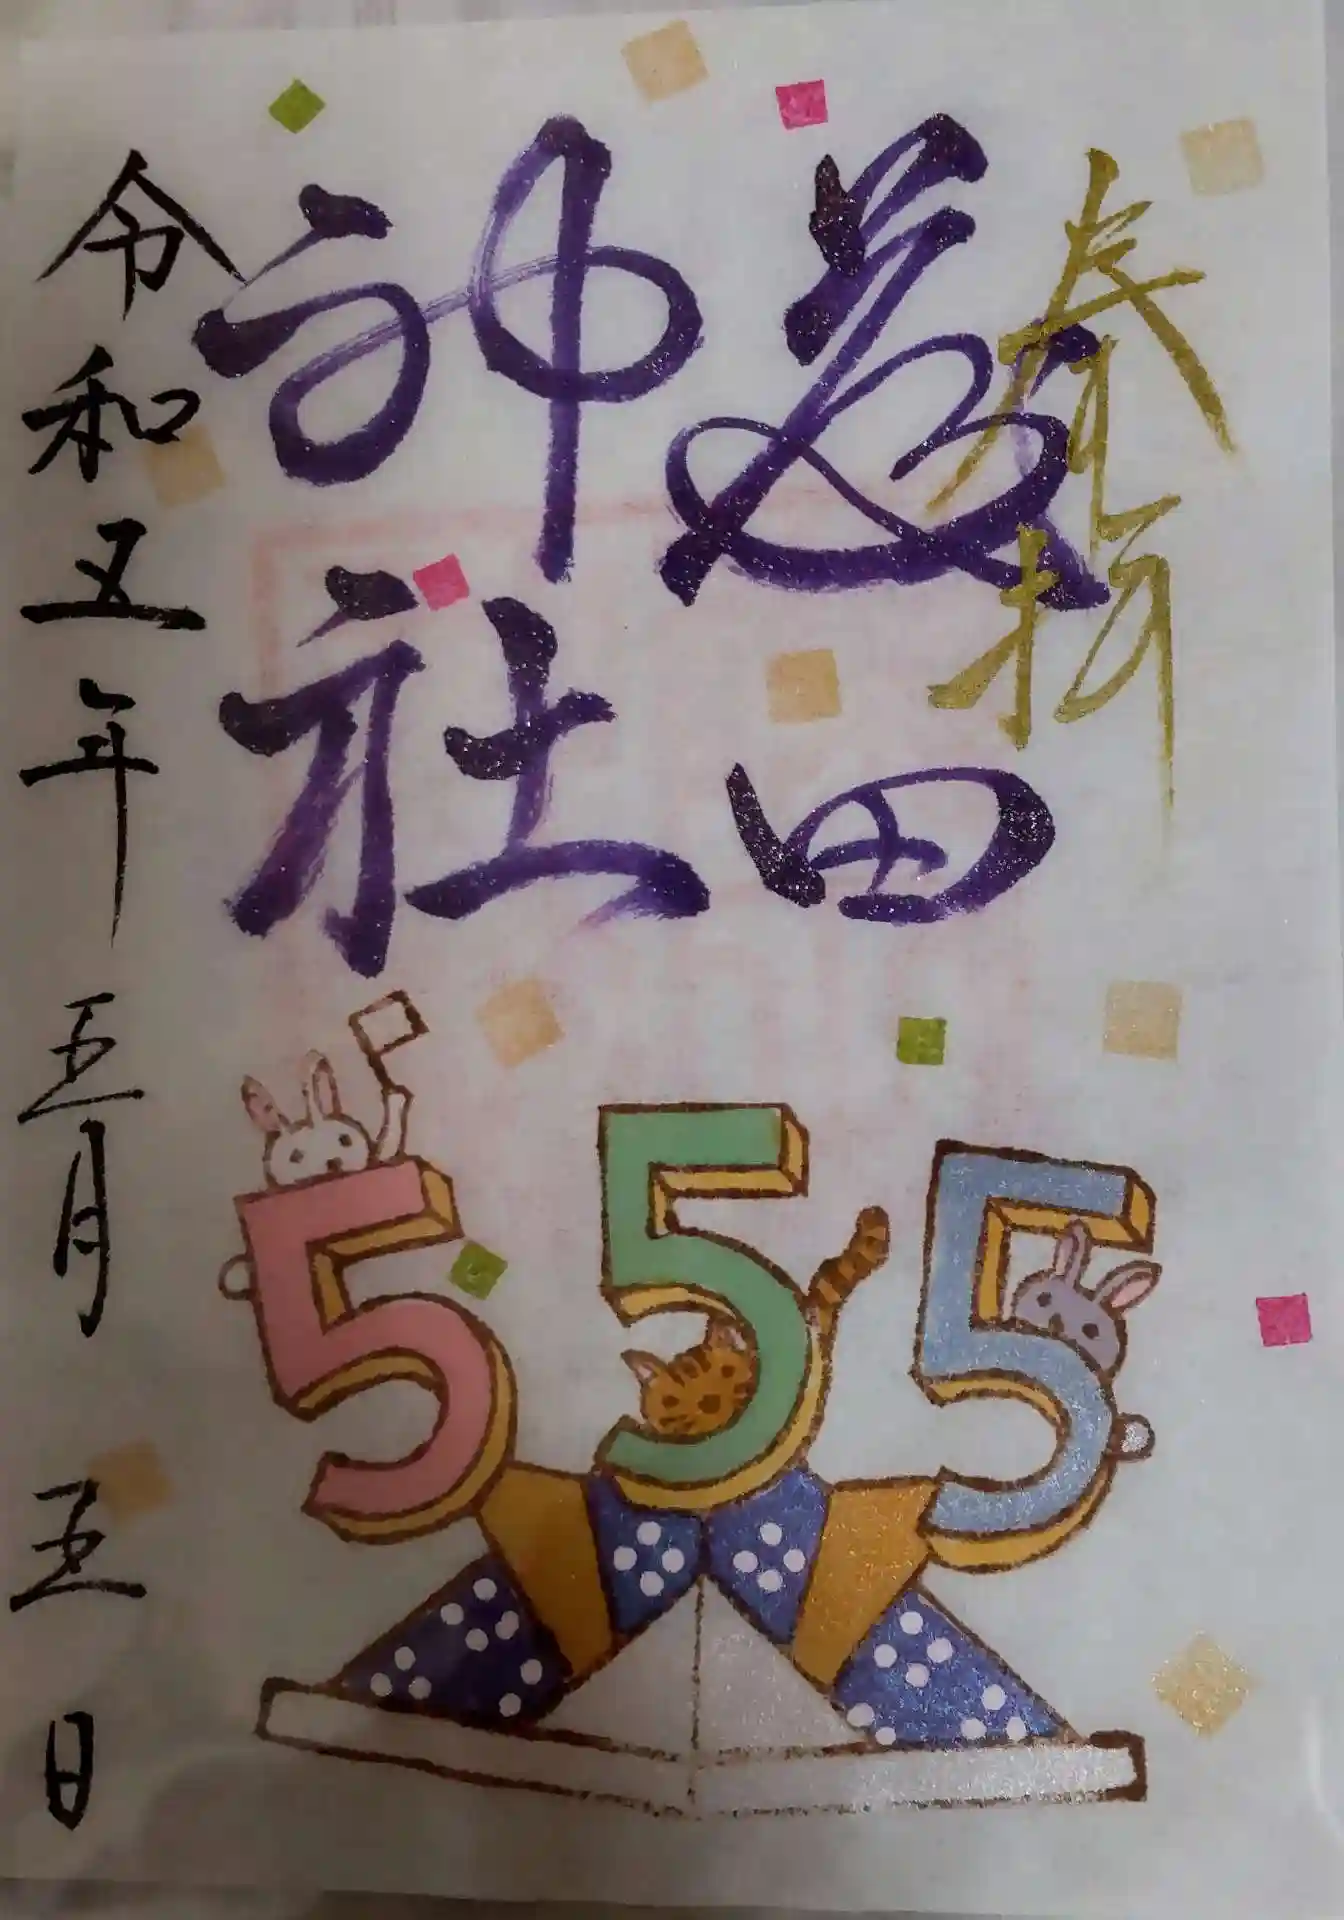 奉拝
田
神社
令和五年五月五日
5 5 5